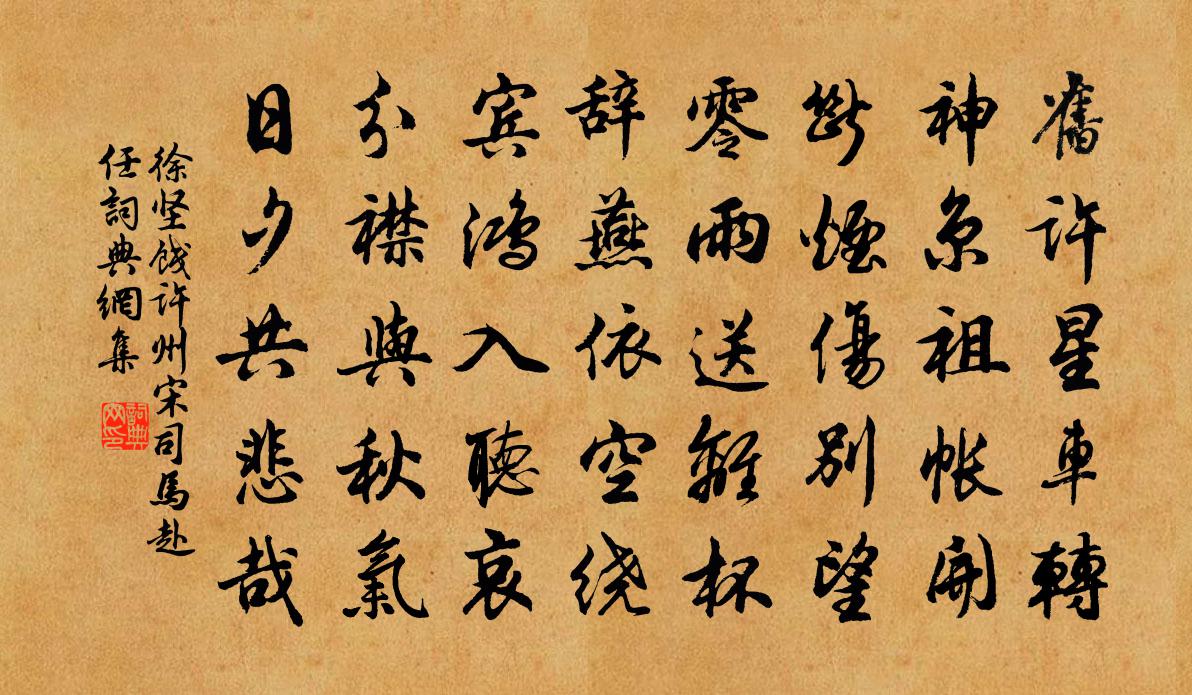 舊許星車轉
神京祖帳開
斷煙傷別望
零雨送離杯
辞燕依空绕
宾鴻入聽哀
分襟與秋氣
日夕共悲哉
徐坚餞许州宋司馬赴
任詞典網集
詞典
网印